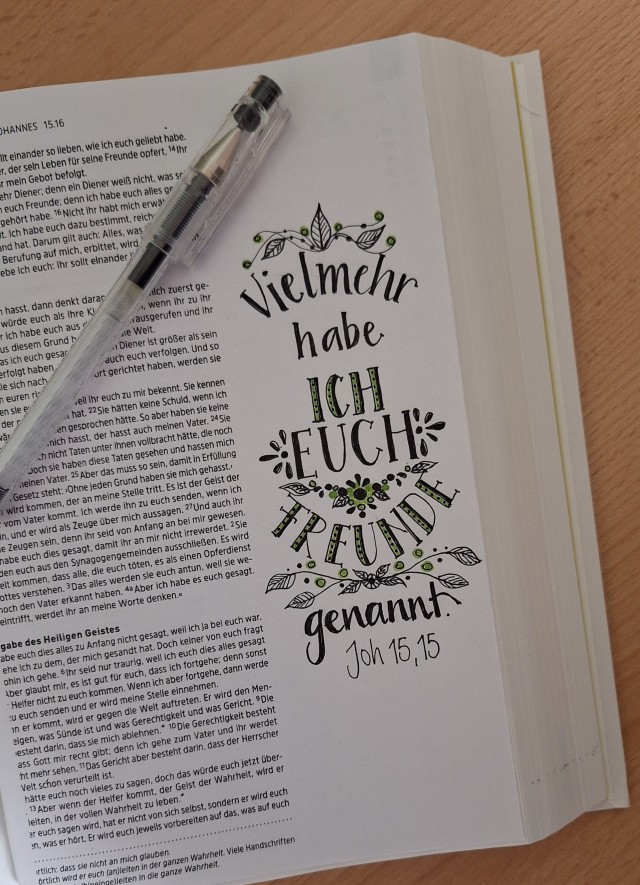 OHANNES 15.16
llt einander so lieben, wie ich euch geliebt habe.
er, der sein Leben für seine Freunde opfert. 14Ihr
r mein Gebot befolgt.
ehr Diener; denn ein Diener weiß nicht, was se
n euch Freunde; denn ich habe euch alles ge
gehört habe. 16Nicht ihr habt mich erwä
t. Ich habe euch dazu bestimmt, reich
and hat. Darum gilt auch: Alles, was
Berufung auf mich, erbittet, wird
ebe ich euch: Ihr sollt einander l
n hasst, dann denkt daran ich zuerst ge-
würde euch als ihre Ki wenn ihr zu ihr
r ich habe euch aus erausgerufen und ihr
us diesem Grund h die Welt.
as ich euch gesag Diener ist größer als sein
erfolgt haben, auch euch verfolgen. Und so
ie sich nach ort gerichtet haben, werden sie
n euren weil ihr euch zu mir bekennt. Sie kennen
en sie hat. 22Sie hätten keine Schuld, wenn ich
der gesprochen hätte. So aber haben sie keine
mich hasst, der hasst auch meinen Vater. 24Sie
ch nicht Taten unter ihnen vollbracht hätte, die noch
Doch sie haben diese Taten gesehen und hassen mich
meinen Vater. 25Aber das muss so sein, damit in Erfüllung
Gesetz steht: ›Ohne jeden Grund haben sie mich gehasst.‹
wird kommen, der an meine Stelle tritt. Es ist der Geist der
vom Vater kommt. Ich werde ihn zu euch senden, wenn ich
n, und er wird als Zeuge über mich aussagen. 27Und auch ihr
e Zeugen sein, denn ihr seid von Anfang an bei mir gewesen.
habe euch dies gesagt, damit ihr an mir nicht irrewerdet. 2Sie
den euch aus den Synagogengemeinden ausschließen. Es wird
eit kommen, dass alle, die euch töten, es als einen Opferdienst
ottes verstehen. 3Das alles werden sie euch antun, weil sie we-
noch den Vater erkannt haben. 4aAber ich habe es euch gesagt.
eintrifft, werdet ihr an meine Worte denken.«
gabe des Heiligen Geistes
abe euch dies alles zu Anfang nicht gesagt, weil ich ja bei euch war.
ehe ich zu dem, der mich gesandt hat. Doch keiner von euch fragt
ohin ich gehe. 6Ihr seid nur traurig, weil ich euch dies alles gesagt
Aber glaubt mir, es ist gut für euch, dass ich fortgehe; denn sonst
Helfer nicht zu euch kommen. Wenn ich aber fortgehe, dann werde
zu euch senden und er wird meine Stelle einnehmen.
n er kommt, wird er gegen die Welt auftreten. Er wird den Men-
eigen, was Sünde ist und was Gerechtigkeit und was Gericht. 9Die
esteht darin, dass sie mich ablehnen.* 10Die Gerechtigkeit besteht
ass Gott mir recht gibt; denn ich gehe zum Vater und ihr werdet
ht mehr sehen. 11Das Gericht aber besteht darin, dass der Herrscher
Welt schon verurteilt ist.
hätte euch noch vieles zu sagen, doch das würde euch jetzt über-
13Aber wenn der Helfer kommt, der Geist der Wahrheit, wird er
leiten, in der vollen Wahrheit zu leben.*
er euch sagen wird, hat er nicht von sich selbst, sondern er wird euch
n, was er hört. Er wird euch jeweils vorbereiten auf das, was auf euch
rtlich: dass sie nicht an mich glauben.
örtlich wird er euch (an)leiten in der ganzen Wahrheit. Viele Handschriften
(hineinge)leiten in die ganze Wahrheit.
Vielmehr
habe
ICH
EUCH
FREUNDE
genannt.
Joh 15,15